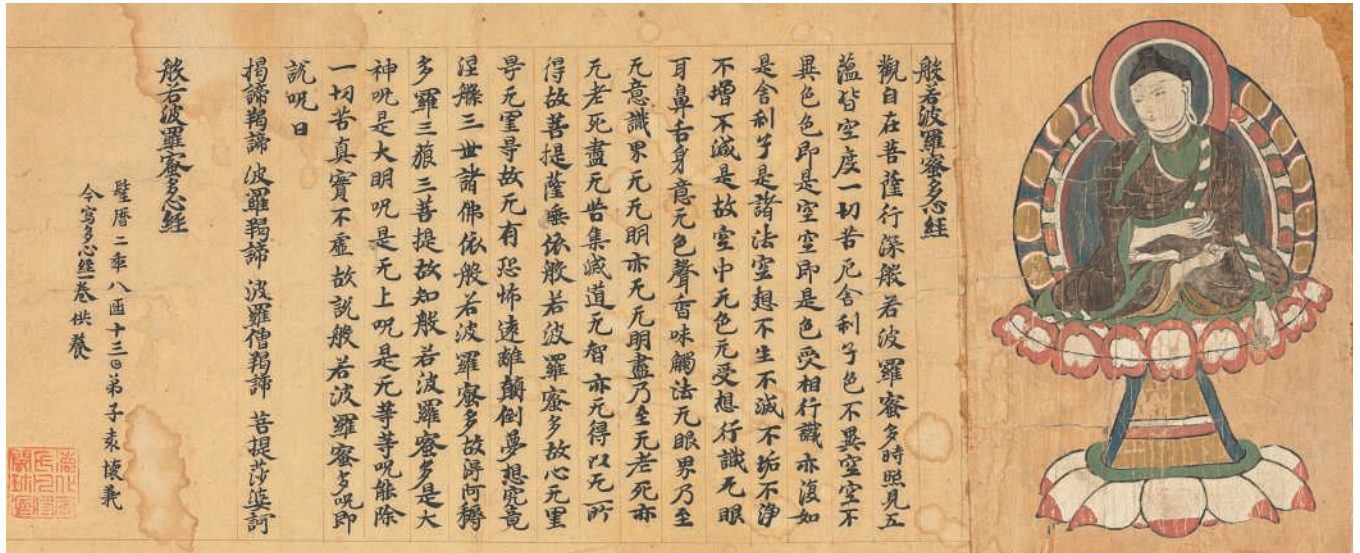 般若波羅蜜多心經
觀自在菩薩行深般若波羅蜜多時照見五
蘊皆空度一切苦厄舍利子色不異空空不
異色色即是空空即是色受相行識亦復如
是舍利子是諸法空想不生不滅不垢不淨
不增不減是故空中无色无受想行識无眼
耳鼻舌身意无色聲香味觸法无眼界乃至
无意識界无无明亦无无明盡乃至无老死亦
无老死盡无苦集滅道无智亦无得以无所
得故菩提薩埵依般若波羅蜜多故心无罣
㝵无罣㝵故无有恐怖遠離顛倒夢想究竟
涅槃三世諸佛依般若波羅蜜多故得阿耨
多羅三藐三菩提故知般若波羅蜜多是大
神呪是大明呪是无上呪是无等等呪能除
一切苦真實不虛故說般若波羅蜜多呪即
說呪曰
揭諦羯諦 波羅羯諦 波羅僧羯諦 菩提莎婆訶
般若波羅蜜多心經
聖曆二𠡦八𠥱十三𡆠弟子袁懷義
令寫多心經一卷供養